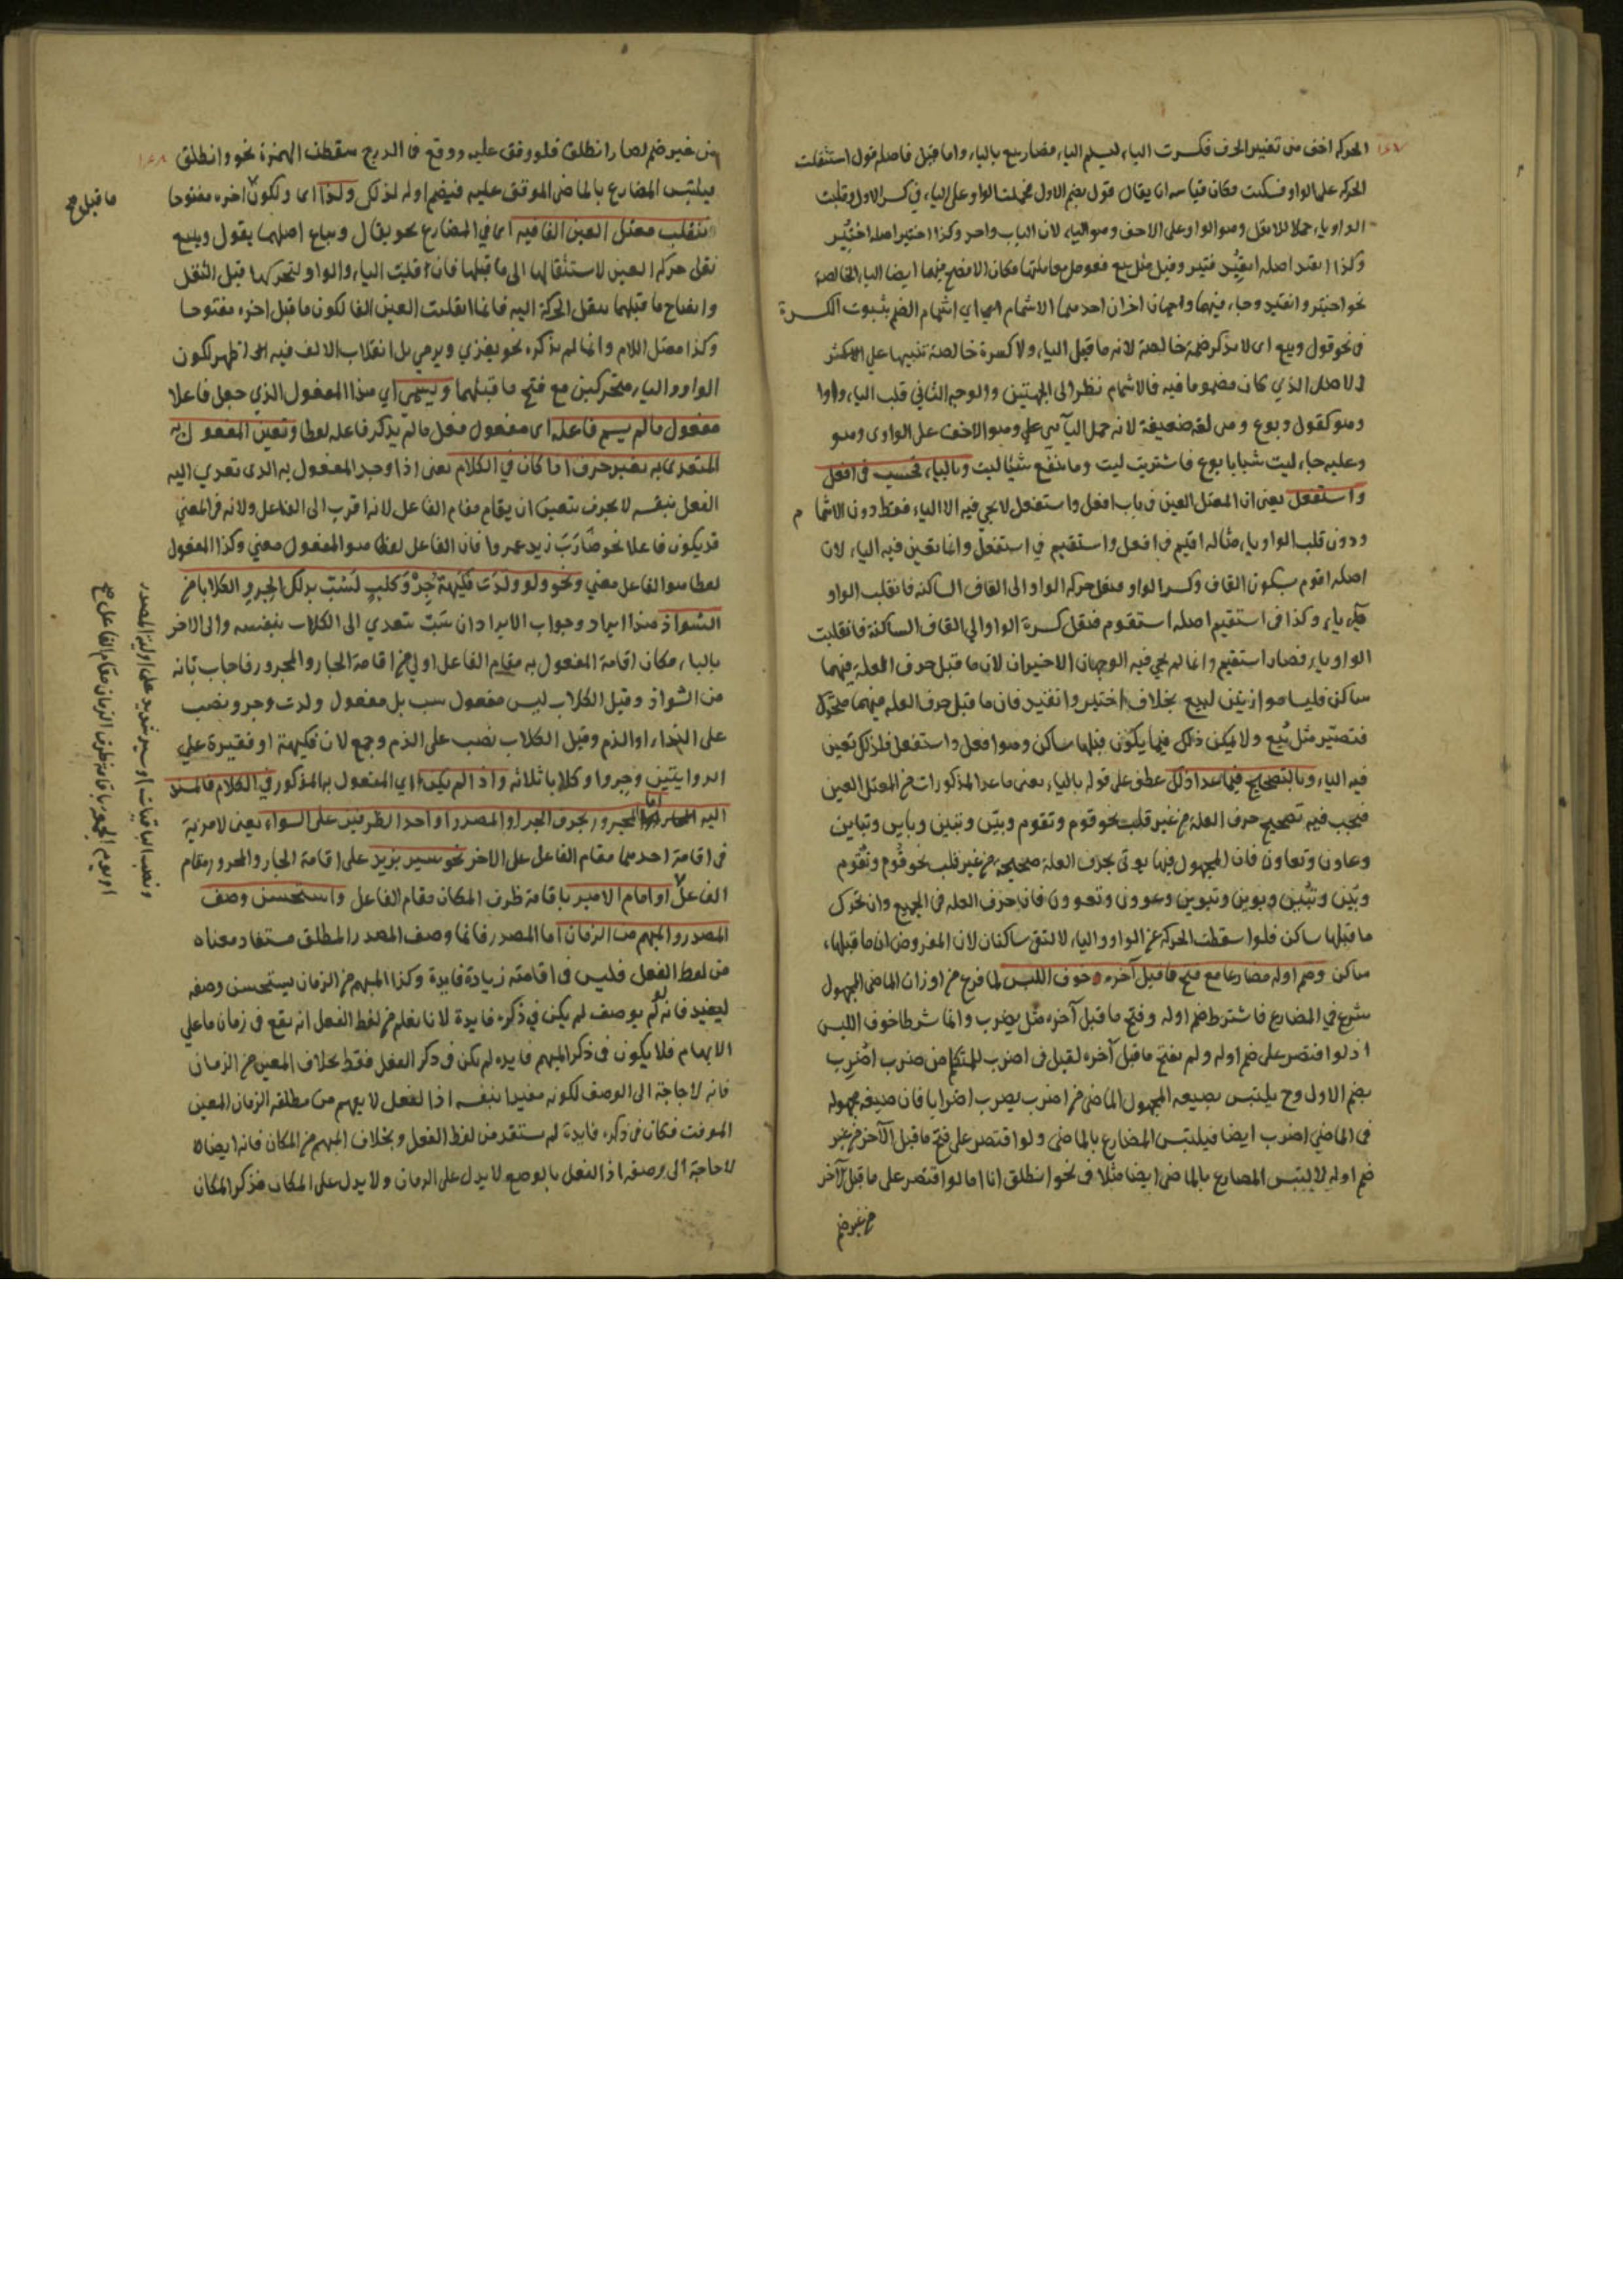 ١٤٧
الحركة اخف من تغيير الحرف فكسرت الباء ليسلم الياء فصار بيع بالياء واما قيل فاصله قول استثقلت
الحركة على الواو فسكنت فكان قياسه ان يقال قول بضم الاول فحملت الواو على الياء في كسر الاول وقلبت
الواو ياء حملا للاثقل وهو الواو على الاخف وهو الياء لان الباب واحد وكذا اختير اصله اختُيِر
وكذا انقيد اصله انقُيِد فتير وقيد مثل بيع فعومل معاملتها فكان الافصح فيهما ايضا الياء الخالصة
نحو اختير وانقيد وجاء فيهما وجهان اخران احدهما الاشمام اي اشمام الضم بثبوت الكسرة
في نحو قول وبيع اى لا يذكر ضمة خالصة لانه ما قبل الياء ولا كسرة خالصة تنبيها على
الاصل الذي كان مضموما فيه فالاشمام نظرا الى الجهتين والوجه الثاني قلب الياء واوا
وهو كقول وبوع وهى لغة ضعيفة لانه حمل اليائي على وهو الاخف على الواوى وهو
وعليه جاء ليت شبابا بوع فاشتريت ليت وما ينفع شيئا ليت وبالياء فحسب في افعل
واستفعل يعنى ان المعتل العين في باب افعل واستفعل لا يجي فيه الا الياء فقط دون الاشمام
ودون قلب الواو ياء مثاله اقيم في افعل واستقيم في استفعل وانما تعين فيه الياء لان
اصله اقوم بسكون القاف وكسر الواو فنقل حركة الواو الى القاف الساكنة فانقلب الواو
ياء وكذا في استقيم اصله استقوم فنقل كسرة الواو الى القاف الساكنة فانقلبت
الواو ياء فصار استقيم وانما لم يجي فيه الوجهان الاخيران لان ما قبل حرف العلة فيهما
ساكن فليسا موازنين لبيع بخلاف اختير وانقيد فان ما قبل حرف العلة فيهما متحرك
فتصير مثل بُيع ولا يمكن ذلك فيما يكون قبلها ساكن وهو افعل واستفعل فلذلك تعين
فيه الياء وبالتصحيح فيما عدا ذلك عطف على قوله بالياء يعنى ما عدا المذكورات من المعتل العين
فيجب فيه تصحيح حرف العلة من غير قلب نحو قوم وتقوم وبيّن وتبين وباين وتباين
وعاون وتعاون فان المجهول فيها يؤتى بحرف العلة صحيحة من غير قلب نحو قُوّم وتُقوم
وبُيّن وتبُيّن وبوين وتبوين وعوون وتعوون فان حرف العلة في الجميع وان تحرك
ما قبلها ساكن فلو اسقطت الحركة عن الواو والياء لالتقى ساكنان لان المفروض ان ما قبلها
ساكن وضم اوله مضارعا مع فتح ما قبل آخره خوف اللبس لما فرغ من اوزان الماضى المجهول
شرع في المضارع فاشترط ضم اوله وفتح ما قبل آخره مثل يضرب وانما شرطا خوف اللبس
اذ لو اقتصر على ضم اوله ولم يفتح ما قبل آخره لقيل في اضرب للمتكلم من ضرب اُضرِب
بضم الاول وح يلتبس بصيغة المجهول الماضى من اضرب يضرب اضرابا فان صيغة مجهوله
في الماضي اضرب ايضا فيلتبس المضارع بالماضى ولو اقتصر على فتح ما قبل الآخر من غير
ضم اوله لالتبس المضارع بالماضى ايضا مثلا في نحو انطلق انا اما لو اقتصر على ما قبل الآخر
من غير ضم
١٤٨
من غير ضم لصار انطلق فلو وقف عليه ووقع في الدرج سقطت الهمزة نحو وانطلق
فيلتبس المضارع بالماضى الموقف عليه فيضم اوله لذلك ولذا اى ولكون اخره مفتوحا
ما قبل صح
تنقلب معتل العين الفا فيه اى في المضارع نحو يقال ويباع اصلهما يقول ويبيع
نقل حركة العين لاستثقالها الى ما قبلها فانقلبت الياء والواو لتحركهما قبل النقل
وانفتاح ما قبلهما بنقل الحركة اليه فانما انقلبت العين الفا لكون ما قبل اخره مفتوحا
وكذا معتل اللام وانما لم يذكره نحو يغزي ويرمي بل انقلاب الالف فيه اظهر لكون
الواو والياء متحركين مع فتح ما قبلهما ويسمى اي هذا المفعول الذي جعل فاعلا
مفعول ما لم يسم فاعله اى مفعول فعل ما لم يذكر فاعله لفظا وتعين المفعول به
المتعدى به بغير حرف اذا كان في الكلام يعنى اذا وجد المفعول به الذى تعدي اليه
الفعل بنفسه لا بحرف يتعين ان يقام مقام الفاعل لانه اقرب الى الفاعل ولانه في المعني
قد يكون فاعلا نحو ضارَبَ زيد عمروا فان الفاعل لفظا هو المفعول معني وكذا المفعول
لفظا هو الفاعل معني ونحو ولو ولدَت فُكيهة جِروَ كلبٍ لَسُبّ بذلك الجرو الكلابا من
الشواذ هذا ايراد وجواب الايراد ان سَبّ يتعدي الى الكلاب بنفسه والى الاخر
بالباء فكان اقامة المفعول به مقام الفاعل اولى من اقامة الجار والمجرور فاجاب بانه
من الشواذ وقيل الكلاب ليس مفعول سب بل مفعول ولدت وجرو نصب
على النداء او الذم وقيل الكلاب نصب على الذم وجمع لان فكيهة او فقيرة على
الروايتين وجروا وكلابا ثلاثه واذا لم يكن اي المفعول به المذكور في الكلام فالمسند
اليه اما المجرور بحرف الجر او المصدر او احد الظرفين على السواء يعنى لا مزية
في اقامة احدهما مقام الفاعل على الاخر نحو سير بزيد على اقامة الجار والمجرور مقام
الفاعل او امام الامير باقامة ظرف المكان مقام الفاعل واستحسن وصف
المصدر والمبهم من الزمان اما المصدر فانما وصف المصدر المطلق مستفاد معناه
من لفظ الفعل فليس في اقامته زيادة فايدة وكذا المبهم من الزمان يستحسن وصفه
ليفيد فانه لو لم يوصف لم يكن في ذكره فايدة لانا نعلم من لفظ الفعل انه يقع في زمان ما على
الابهام فلا يكون في ذكر المبهم فايدة لم تكن في ذكر الفعل فقط بخلاف المعين من الزمان
فانه لا حاجة الى الوصف لكونه مفيدا بنفسه اذ الفعل لا يفهم من مطلقه الزمان المعين
الموقت فكان في ذكره فايدة لم يستفد من لفظ الفعل وبخلاف المبهم من المكان فانه ايضا
لا حاجة الى وصفه اذ الفعل بالوضع لا يدل على الزمان ولا يدل على المكان فذكر المكان
ونصب الباقيات او سير شديد على اولية المصدر
او يوم الجمعة باقامة ظرف الزمان مقام الفاعل صح